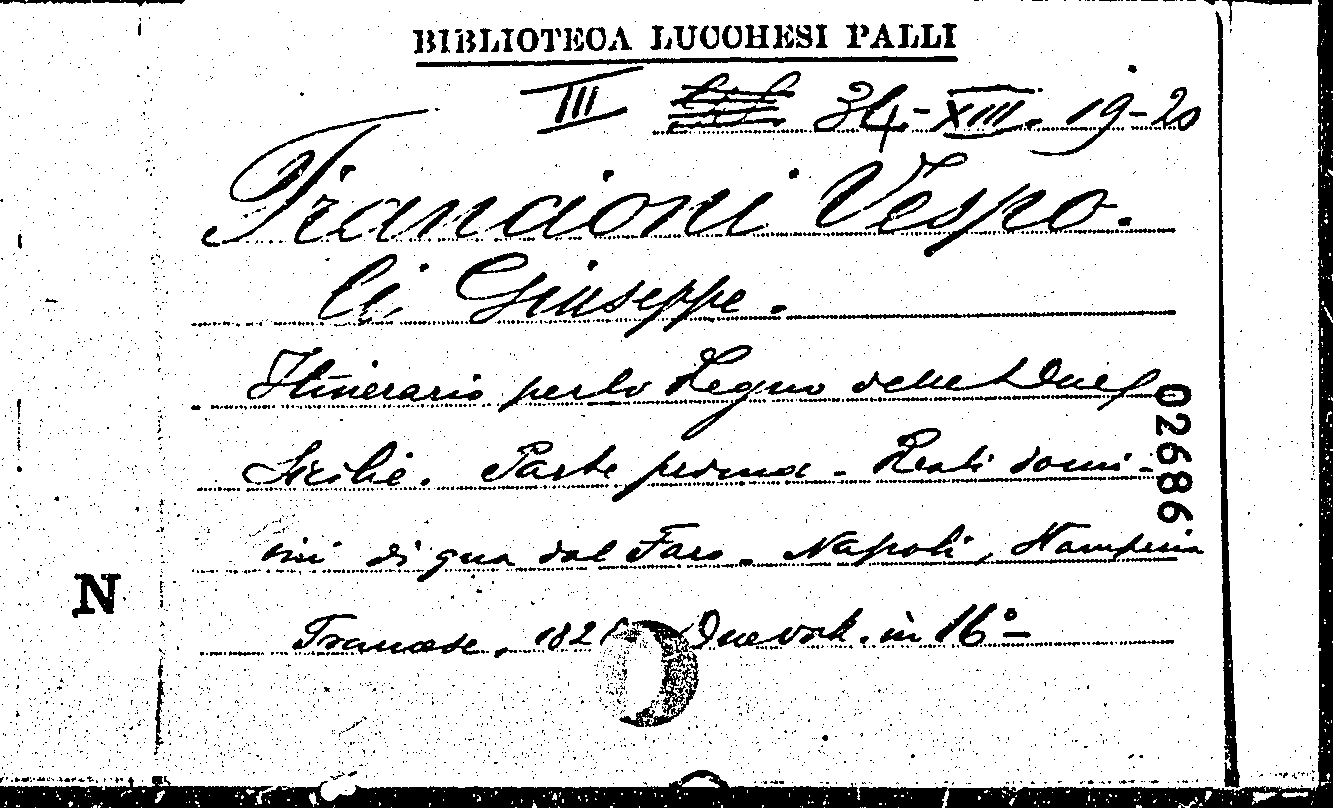 BIBLIOTECA LUCCHESI PALLI
III 34.-XIII. 19-20
Francioni Vespo.
li, Giuseppe.
Itinerario per lo Regno delle Due
Sicilie. Parte prima - Reali domi-
nii di qua dal Faro. Napoli, Stamperia
Francese, 182 Due vol. in 16°-
02686
N